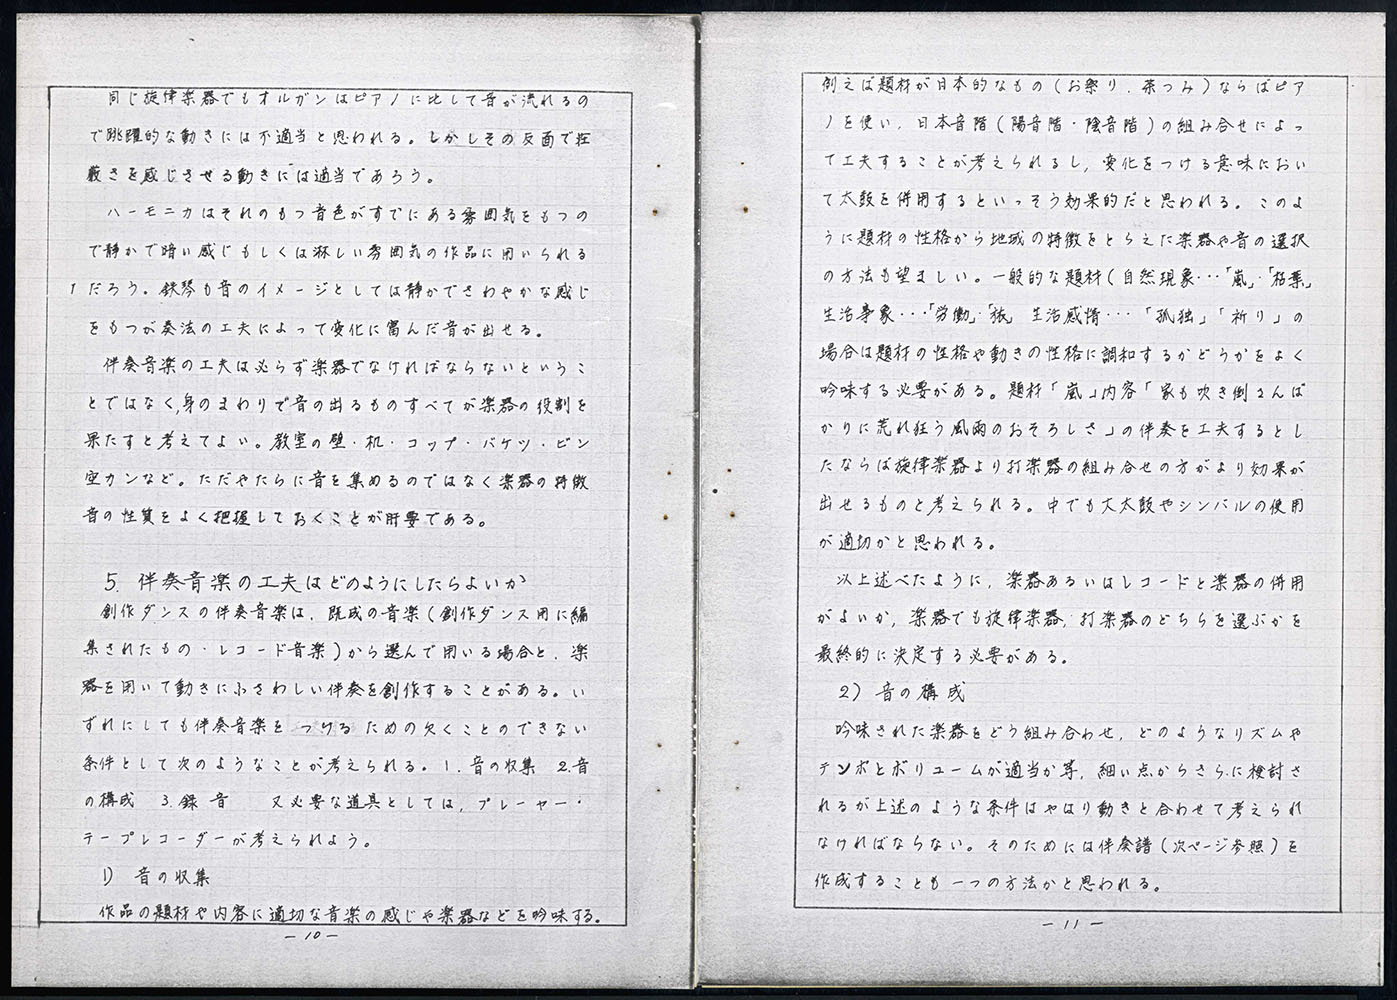 同じ旋律楽器でもオルガンはピアノに比して音が流れるの
で跳躍的な動きには不適当と思われる。しかしその反面で荘
厳さを感じさせる動きには適当であろう。
ハーモニカはそれのもつ音色がすでにある雰囲気をもつの
で静かで暗い感じもしくは淋しい雰囲気の作品に用いられる
だろう。鉄琴も音のイメージとしては静かでさわやかな感じ
をもつが奏法の工夫によって変化に富んだ音が出せる。
伴奏音楽の工夫は必らず楽器でなければならないというこ
とではなく,身のまわりで音の出るものすべてが楽器の役割を
果たすと考えてよい。教室の壁・机・コップ・バケツ・ビン
空カンなど。ただやたらに音を集めるのではなく楽器の特徴
音の性質をよく把握しておくことが肝要である。
5. 伴奏音楽の工夫はどのようにしたらよいか
創作ダンスの伴奏音楽は,既成の音楽(創作ダンス用に編
集されたもの・レコード音楽)から選んで用いる場合と,楽
器を用いて動きにふさわしい伴奏を創作することがある。い
ずれにしても伴奏音楽をつけるための欠くことのできない
条件として次のようなことが考えられる。1.音の収集 2.音
の構成 3.録音 又必要な道具としては,プレーヤー・
テープレコーダーが考えられよう。
1) 音の収集
作品の題材や内容に適切な音楽の感じや楽器などを吟味する。
－10－
例えば題材が日本的なもの(お祭り.茶つみ)ならばピア
ノを使い,日本音階(陽音階・陰音階)の組み合せによっ
て工夫することが考えられるし,変化をつける意味におい
て太鼓を併用するといっそう効果的だと思われる。このよ
うに題材の性格から地域の特徴をとらえた楽器や音の選択
の方法も望ましい。一般的な題材(自然現象…「嵐」・「枯葉」
生活事象…「労働」・「旅」 生活感情…「孤独」「祈り」の
場合は題材の性格や動きの性格に調和するかどうかをよく
吟味する必要がある。題材「嵐」内容「家も吹き倒さんば
かりに荒れ狂う風雨のおそろしさ」の伴奏を工夫するとし
たならば旋律楽器より打楽器の組み合せの方がより効果が
出せるものと考えられる。中でも大太鼓やシンバルの使用
が適切かと思われる。
以上述べたように,楽器あるいはレコードと楽器の併用
がよいか,楽器でも旋律楽器,打楽器のどちらを選ぶかを
最終的に決定する必要がある。
2) 音の構成
吟味された楽器をどう組み合わせ,どのようなリズムや
テンポとボリュームが適当か等,細い点からさらに検討さ
れるが上述のような条件はやはり動きと合わせて考えられ
なければならない。そのためには伴奏譜(次ページ参照)を
作成することも一つの方法かと思われる。
－11－